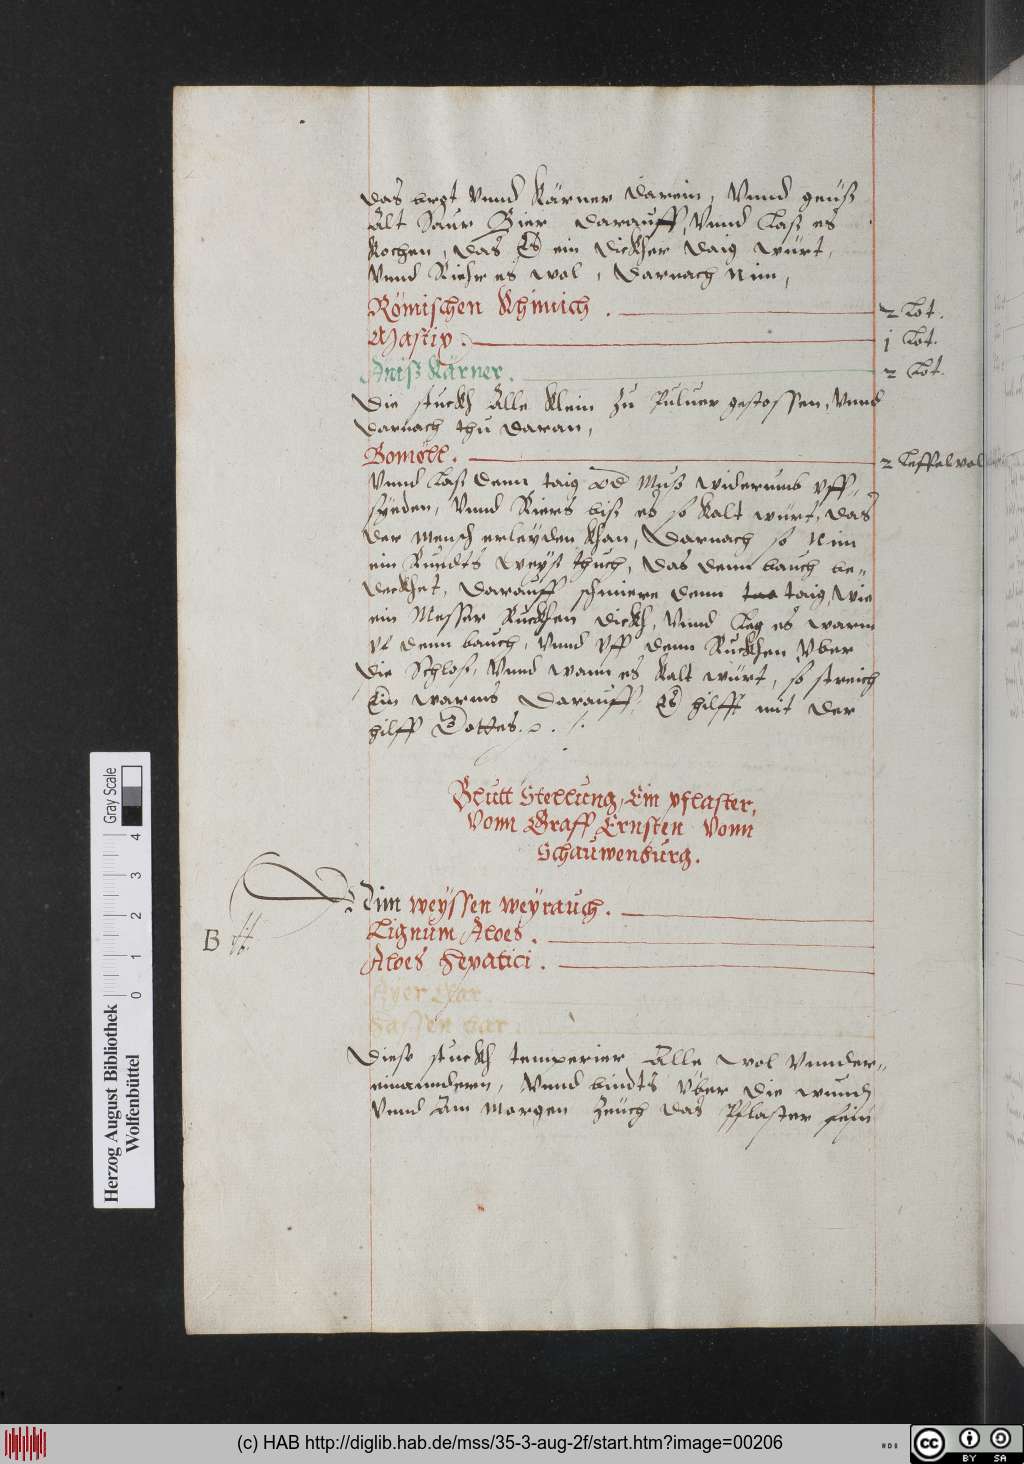 das brot Vnnd Kärner darein, Vnnd geuß
Alt Saur Bier darauff, Vnnd Laß es
Kochen, das Es ein dickher daig würt,
Vnnd Riehr es wol, Darnach Nim,
Römischen Khimich. 2 Lot.
Mastix. j Lot.
Aniß Kärner. 2 Lot.
Die stuckh Alle klein zu Puluer gestossen, Vnnd
darnach thu daran,
Bomöll. 2 Leffel vol
Vnnd Laß denn taig od Muß widerumb vff
syeden, Vnnd Riers biß es so kalt würt, das
der Mensch erleyden khan, Darnach so Nim
ein Rundts weyß thuch, das denn bauch be-
deckhet, darauff schmiere denn taig, wie
ein Messer Ruckhen dickh, Vnnd Leg es warm
vf denn bauch, Vnnd vff denn Ruckhen Vber
die Schloß, Vnnd wann es kalt würt, so streich
Ein warms darauff, Es hilfft mit der
hilff Gottes.
Blutt Stellung, Ein pflaster,
Vonn Graff Ernsten Vonn
Schauwenburg.
Nim weyssen weyrauch.
B
Lignum Aloes.
Aloes Hepatici.
Ayer klar.
Hassen har.
Diese stuckh temperier Alle wol Vnnder-
einannderen, Vnnd bindts Vber die wund,
Vnnd Am Morgen Zeuch das Pflaster fein
Herzog August Bibliothek
Wolfenbüttel
0 1 2 3 4
Gray Scale
(c) HAB http://diglib.hab.de/mss/35-3-aug-2f/start.htm?image=00206
cc BY SA